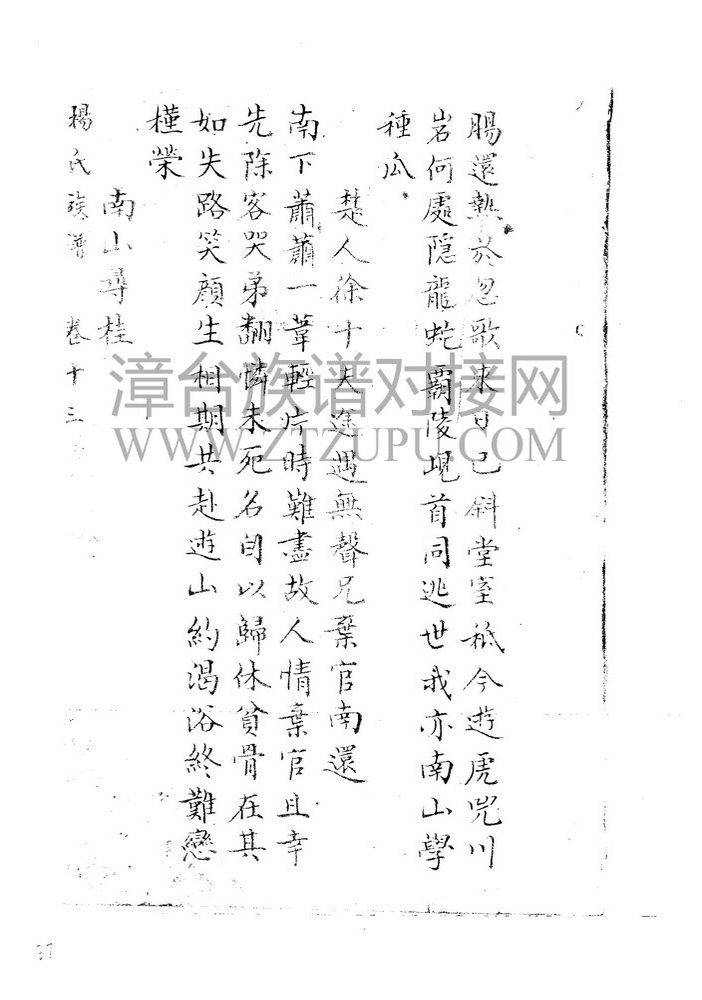 腸還熱於忽歌来日已斜堂室秪今遊虎兕川
岩何處隠龍虵覇陵峴首同逃世我亦南山學
種瓜
楚人徐十夫途遇無聲兄棄官南還
南下蕭蕭一葦輕片時難盡故人情棄官且幸
先除客哭弟翻憐未死名自以歸休貧骨在其
如失路笑顔生相期共赴遊山約渴浴終難戀
槿榮
南山尋桂
楊氏族譜 卷十三
漳台族谱对接网
WWW.ZTZUPU.COM
37